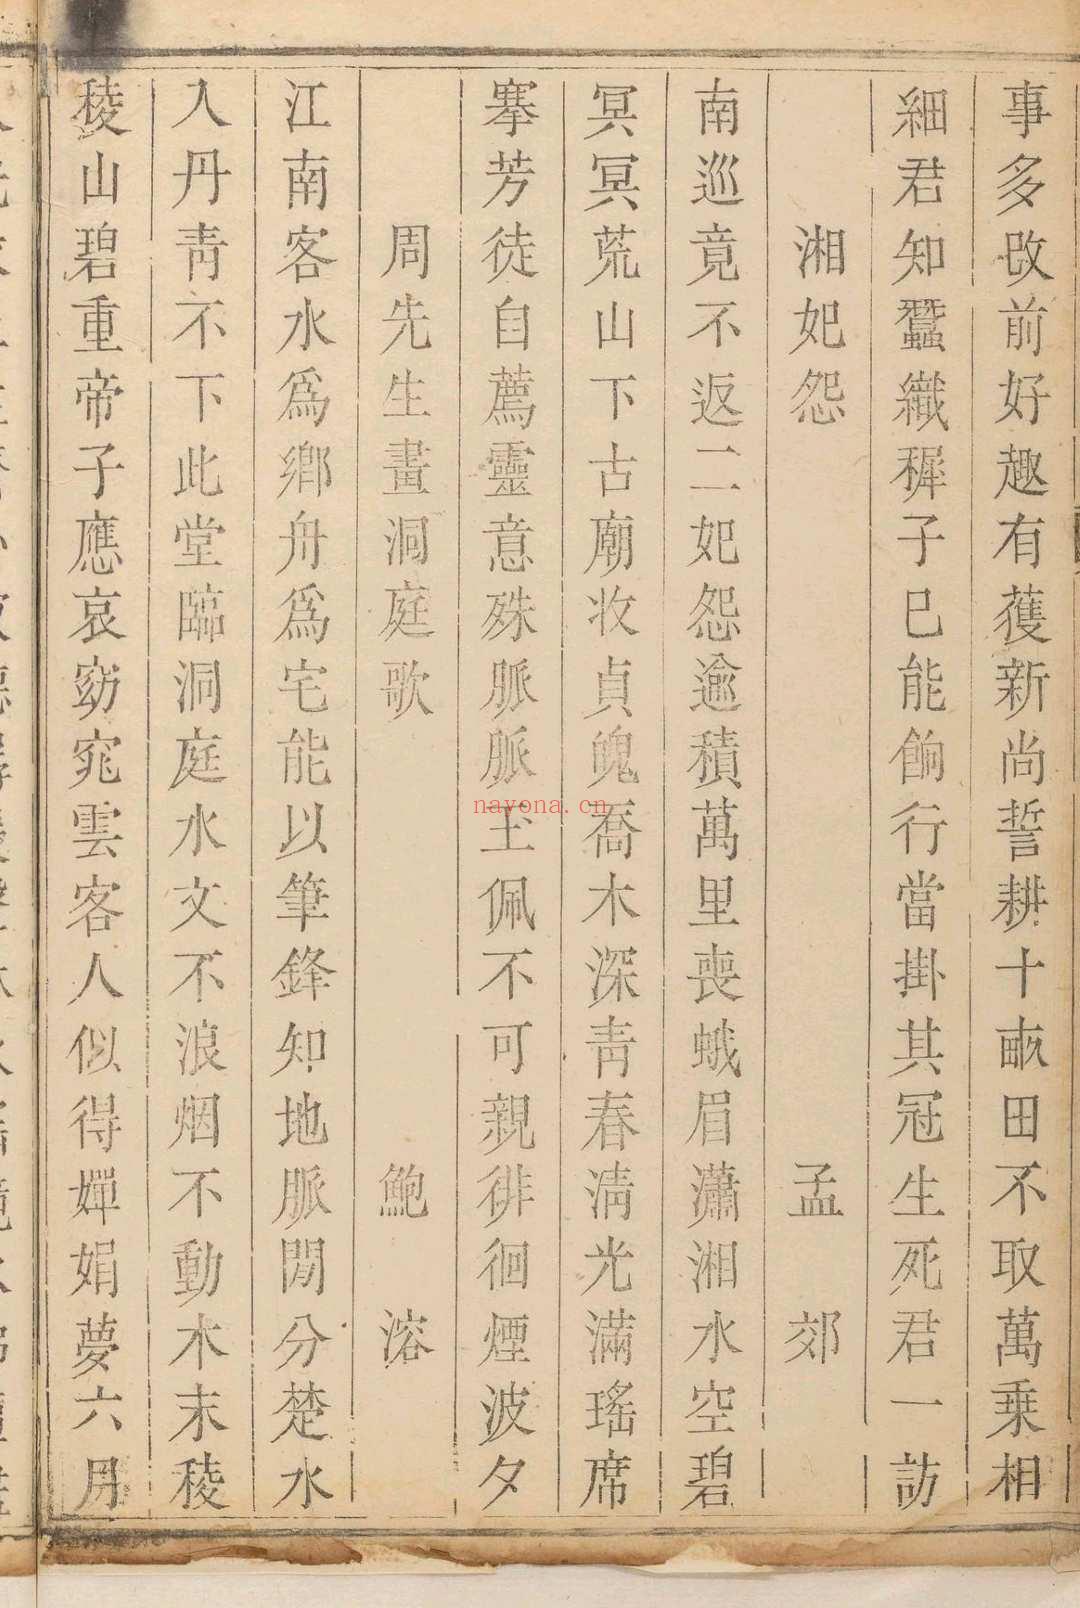 事多改前好趣有獲新尚誓耕十畝田不取萬乗相
細君知蠶織穉子已能餉行當掛其冠生死君一訪
湘妃怨 孟郊
南巡竟不返二妃怨逾積萬里喪蛾眉瀟湘水空碧
冥冥荒山下古廟收貞魄喬木深青春清光滿瑤席
搴芳徒自薦靈意殊脈脈玉佩不可親徘徊煙波夕
周先生畫洞庭歌 鮑溶
江南客水為鄉舟為宅能以筆鋒知地脈閒分楚水
入丹青不下此堂臨洞庭水文不浪烟不動木末稜
稜山碧重帝子應哀窈窕雲客人似得嬋娟夢六月
nayona.cn